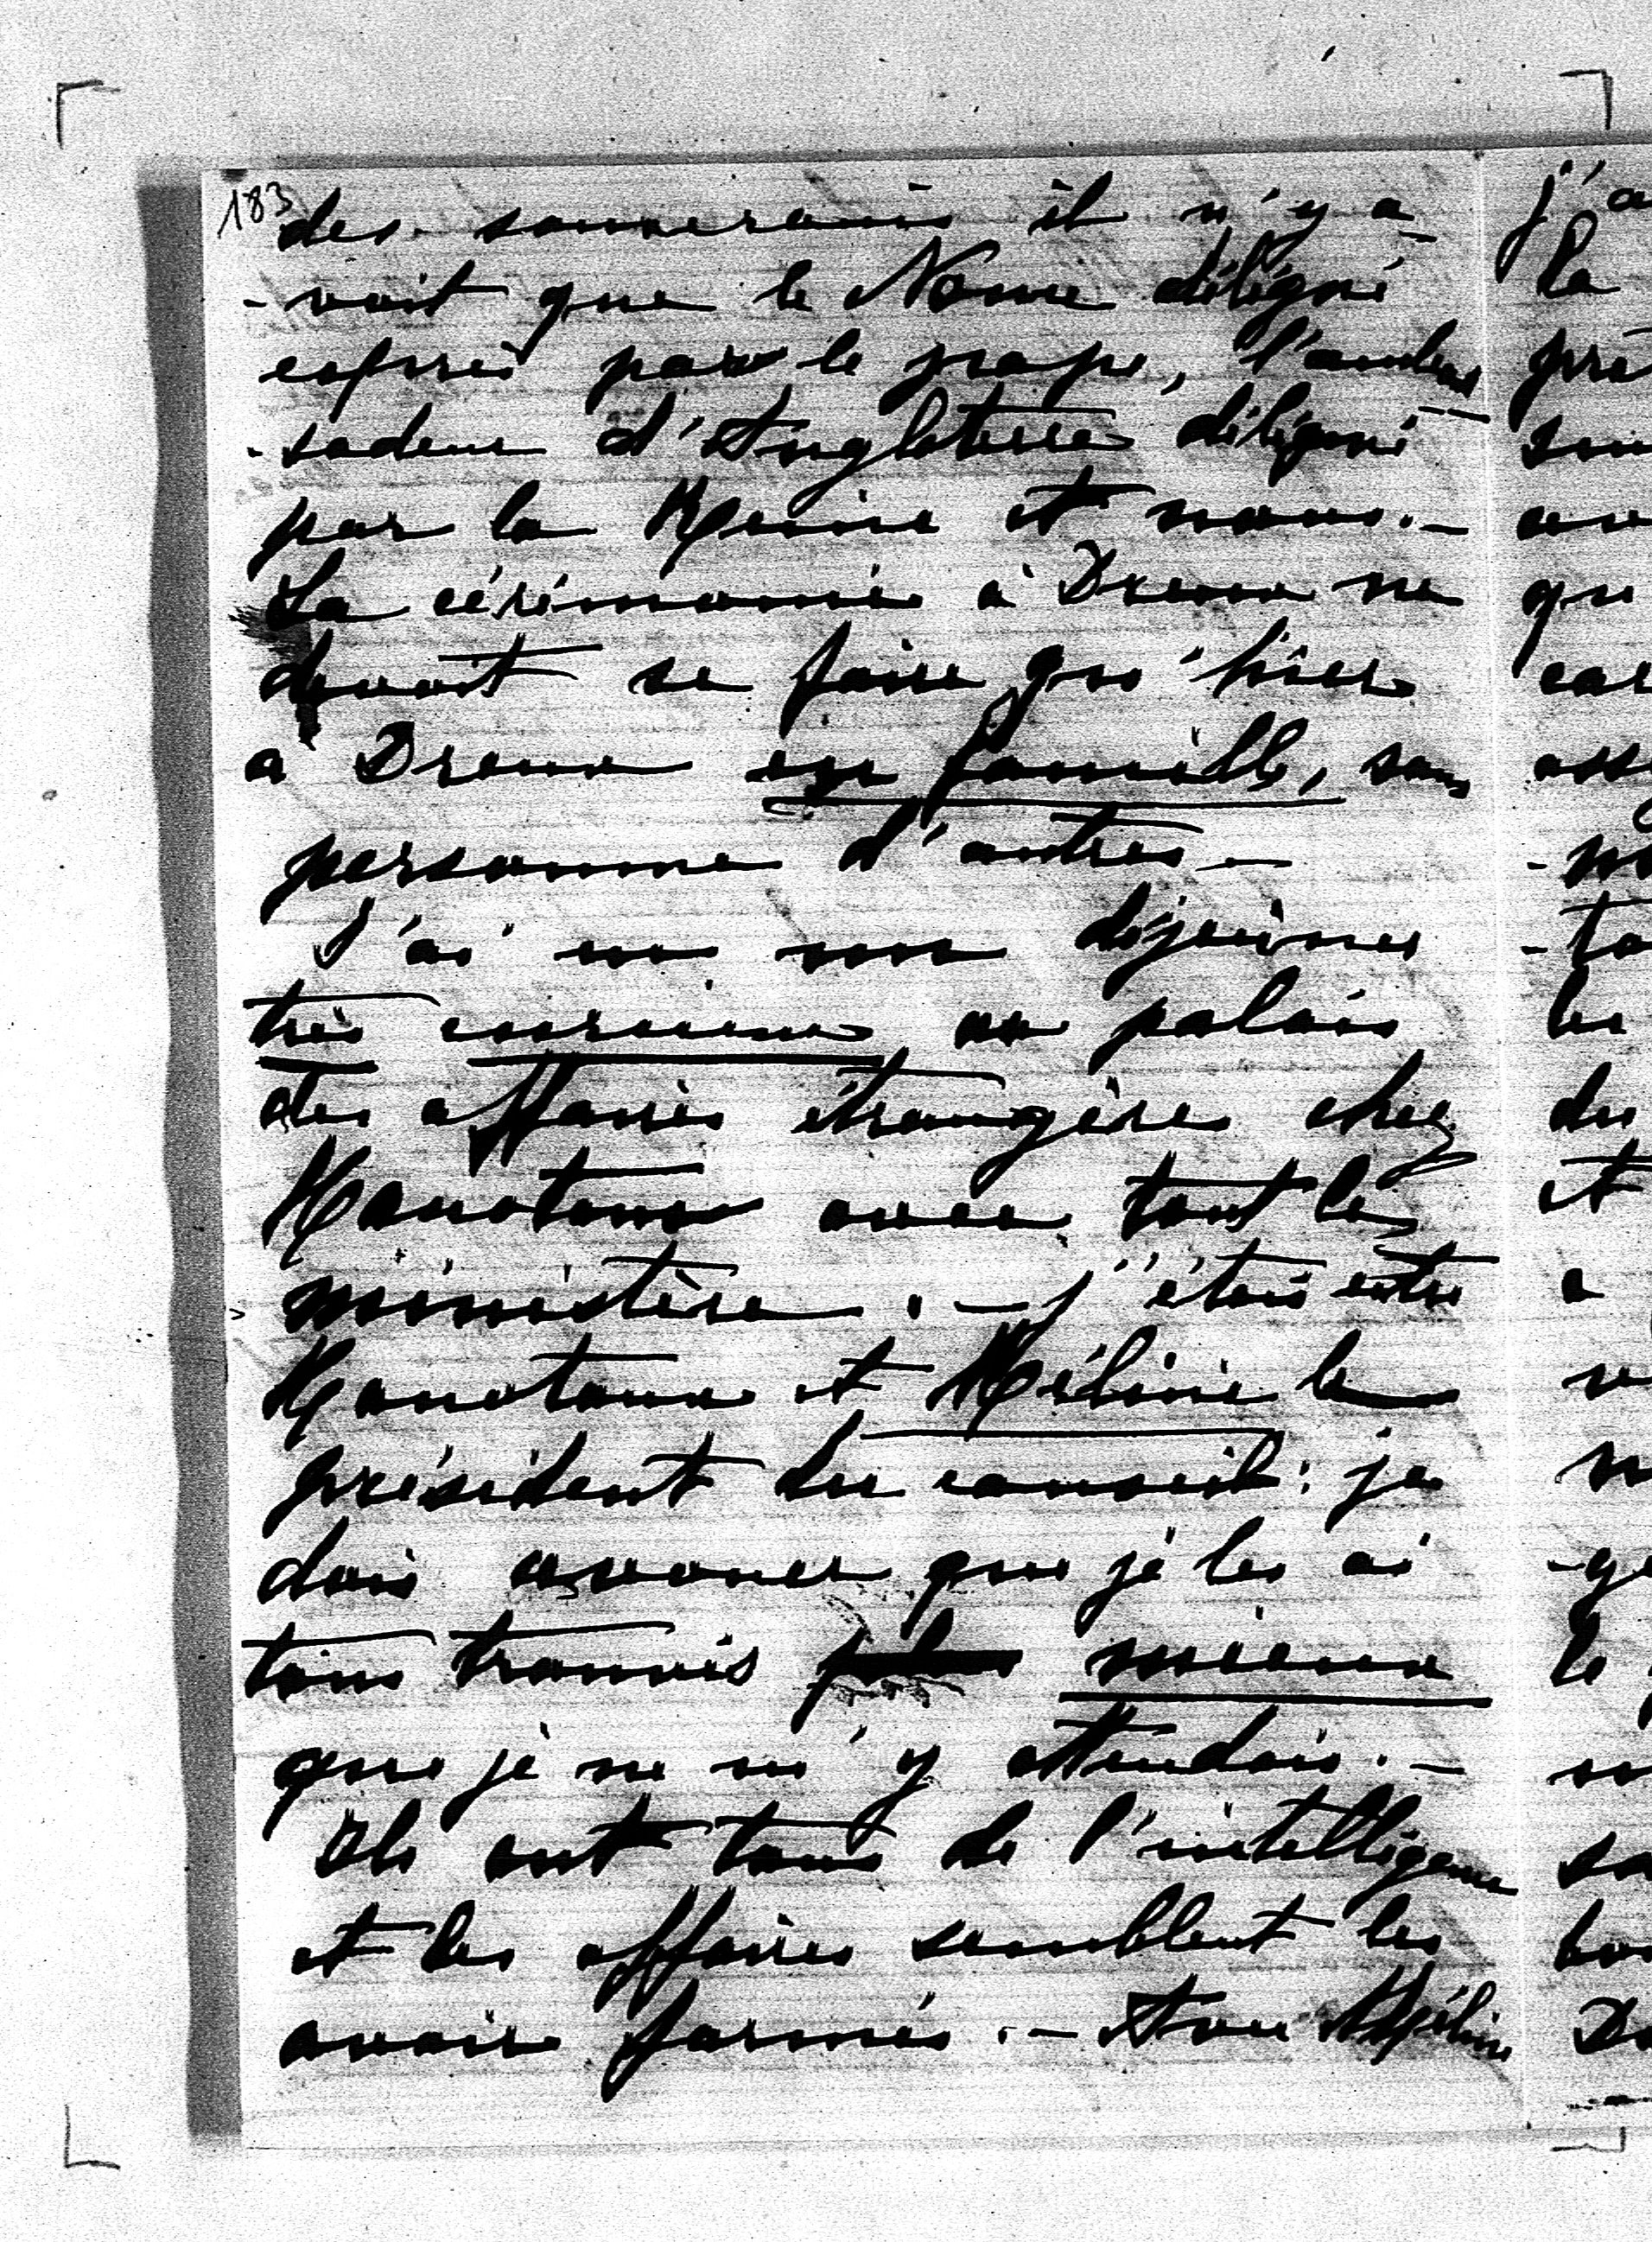 183
des souverains il n'y a
-vait que le Nonce délégué
exprès par le pape, l'ambas
-sadeur d'Angleterre délégué
par la Reine et nous. -
La cérémonie à Dreux ne
devait se faire qu'hier
a Dreux en famille, sans
personne d'autres -
J'ai eu un déjeuner
très curieux au palais
des affaires étrangères chez
Hanotaux avec tout le
ministère. - j'étais entre
Hanotaux et Méline le
président du conseil: je
dois avouer que je les ai
tous trouvés plus mieux
que je ne m'y attendais. -
Ils ont tous de l'intelligence
et les affaires semblent les
avoir formés. - Avec Méline
j'a
la
pré
sui
av
qu
car
ass
-to
les
du
et
a
-ge
le
bo